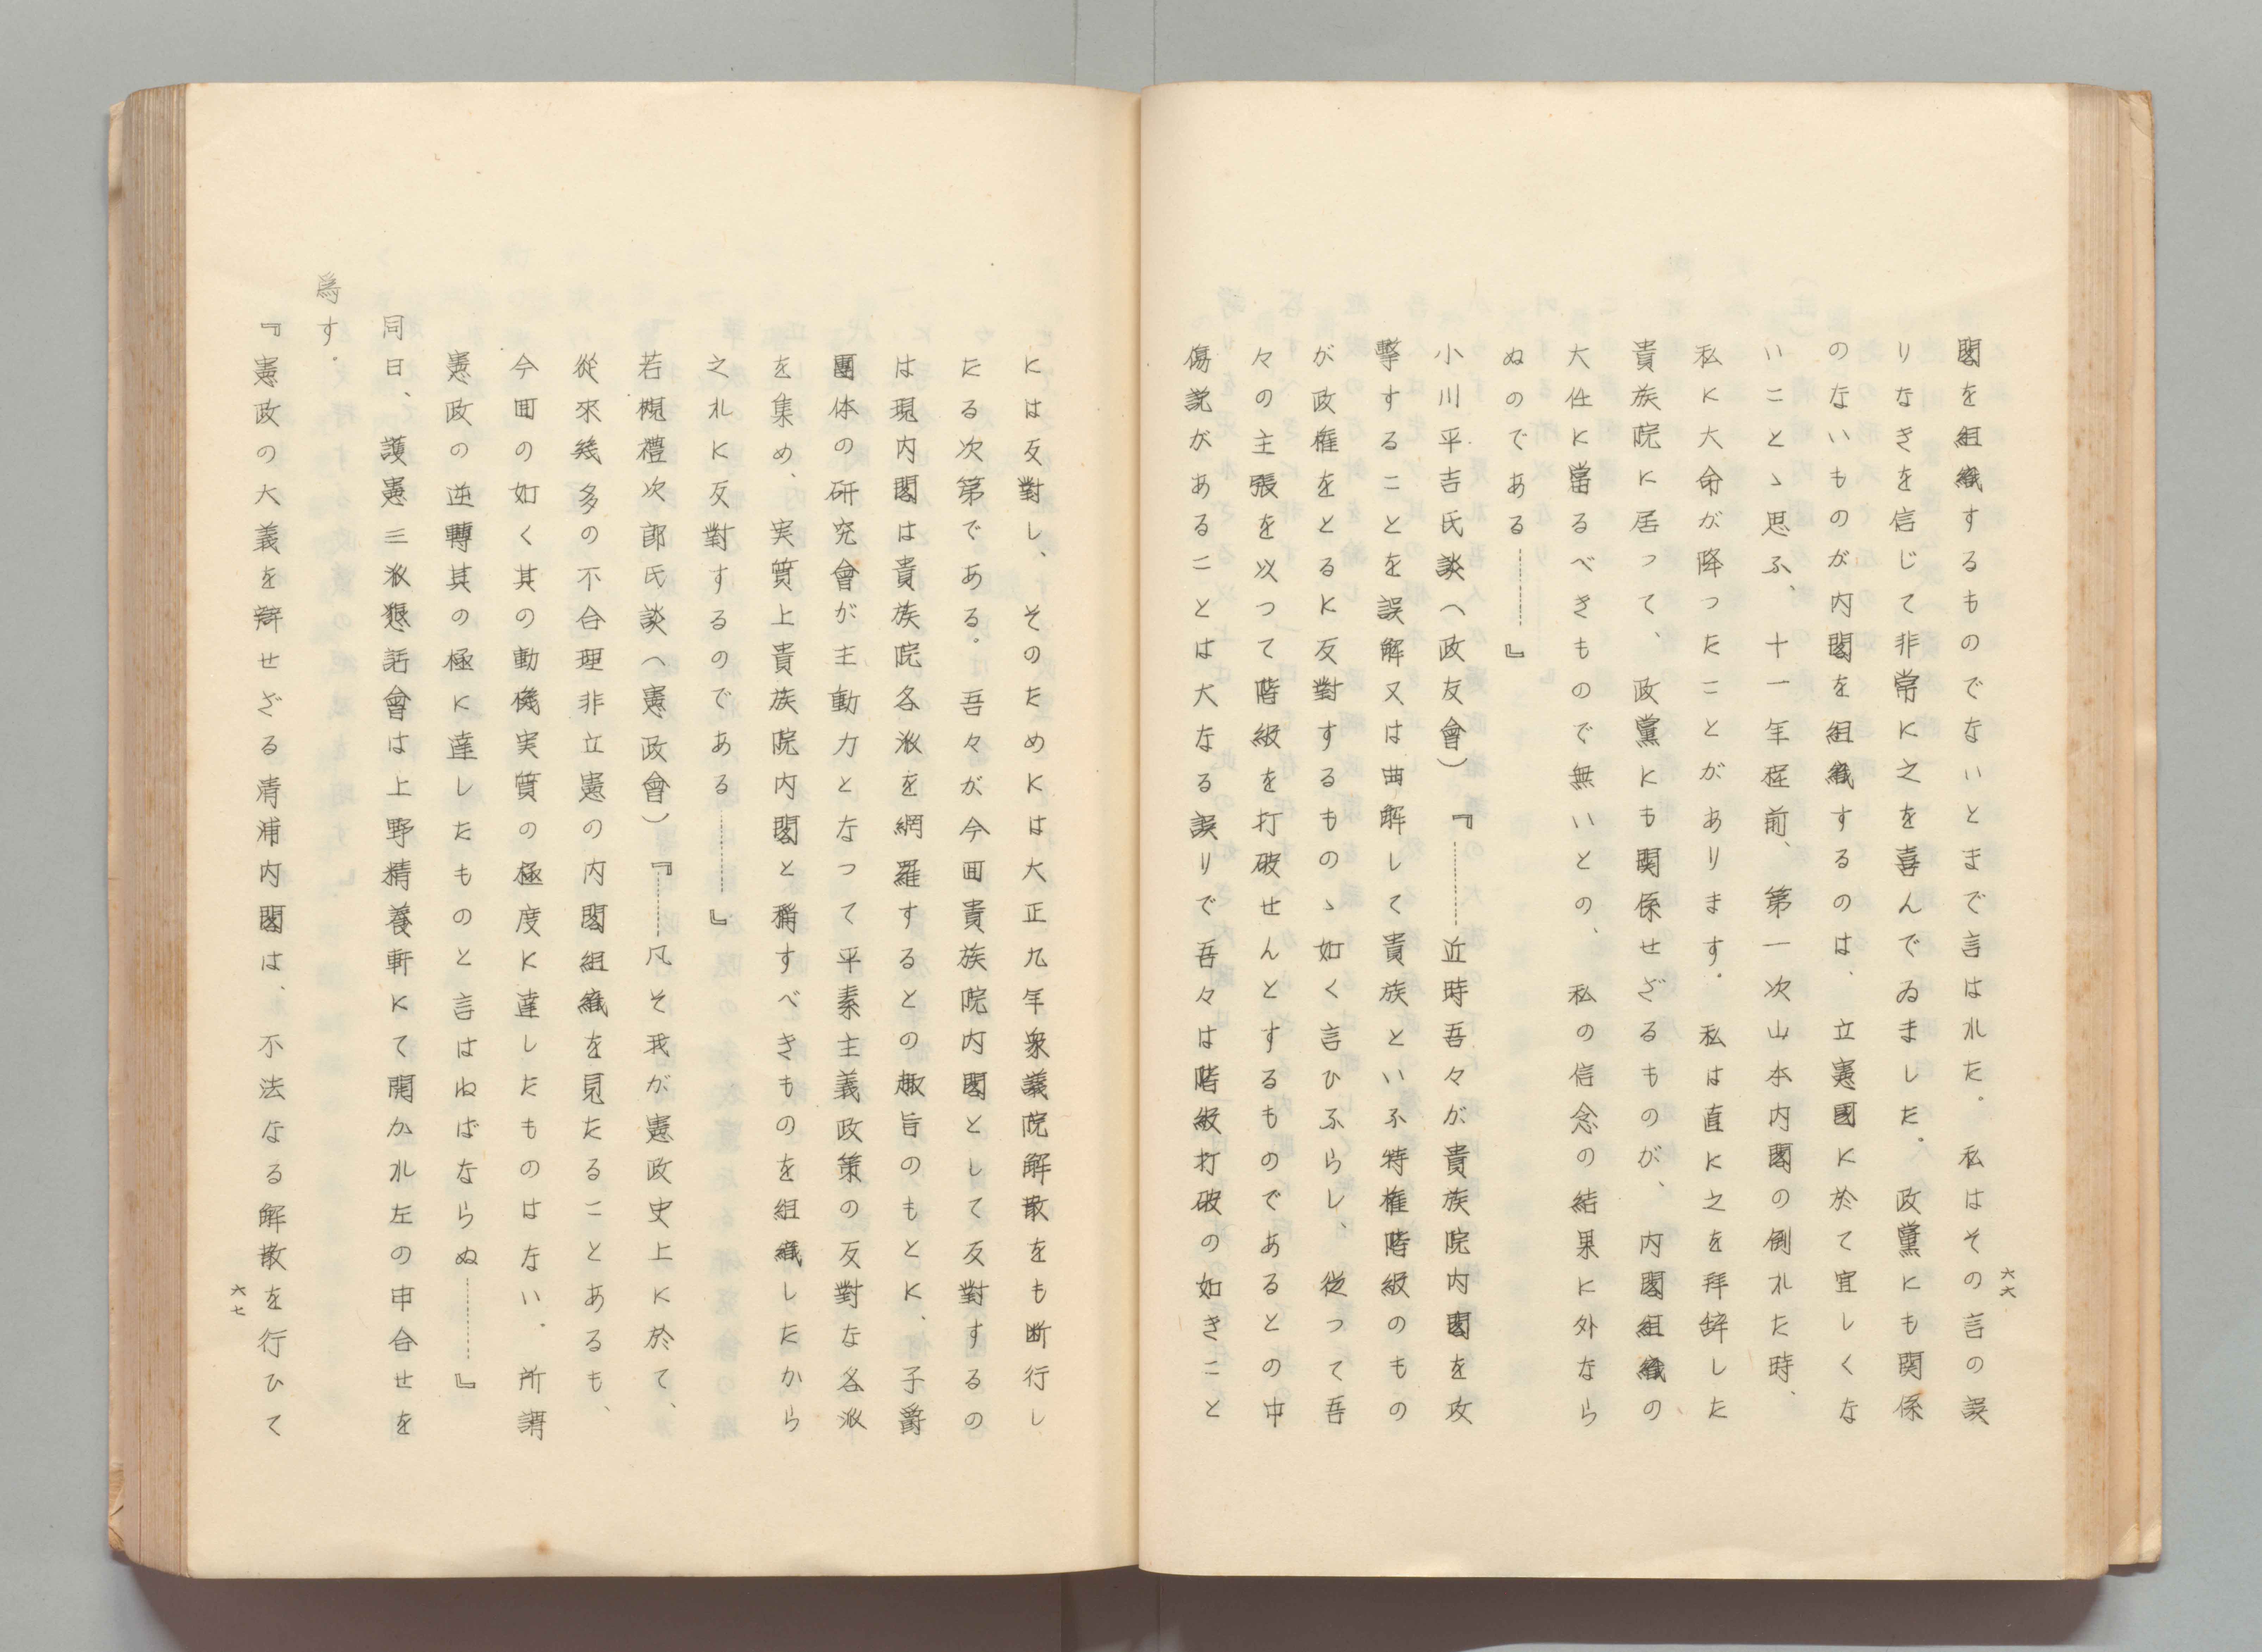 閣を組織するものでないとまで言はれた。私はその言の誤
りなきを信じて非常に之を喜んでゐました。政黨にも関係
のないものが内閣を組織するのは、立憲國に於て宜しくな
いことゝ思ふ、十一年程前、第一次山本内閣の倒れた時、
私に大命が降つたことがあります。私は直に之を拜辞した
貴族院に居って、政黨にも関係せざるものが、内閣組織の
大任に當るべきもので無いとの、私の信念の結果に外なら
ぬのである………』
小川平吉氏談（政友會）『………近時吾々が貴族院内閣を攻
擊することを誤解又は曲解して貴族といふ特権階級のもの
が政権をとるに反對するものゝ如く言ひふらし、従つて吾
々の主張を以つて階級を打破せんとするものであるとの中
傷説があることは大なる誤りで吾々は階級打破の如きこと
六六
には反對し、そのためには大正九年衆議院解散をも断行し
たる次第である。吾々が今回貴族院内閣として反對するの
は現内閣は貴族院各派を網羅するとの趣旨のもとに、子爵
團体の研究會が主動力となって平素主義政策の反對な各派
を集め、実質上貴族院内閣と稱すべきものを組織したから
之れに反對するのである………』
若槻禮次郎氏談（憲政會）『………凡そ我が憲政史上に於て、
從來幾多の不合理非立憲の内閣組織を見たることあるも、
今回の如く其の動機実質の極度に達したものはない。所謂
憲政の逆轉其の極に達したものと言はねばならぬ………』
同日、護憲三派懇話會は上野精養軒にて開かれ左の申合せを
爲す。
『憲政の大義を辯せざる清浦内閣は、不法なる解散を行ひて
六七